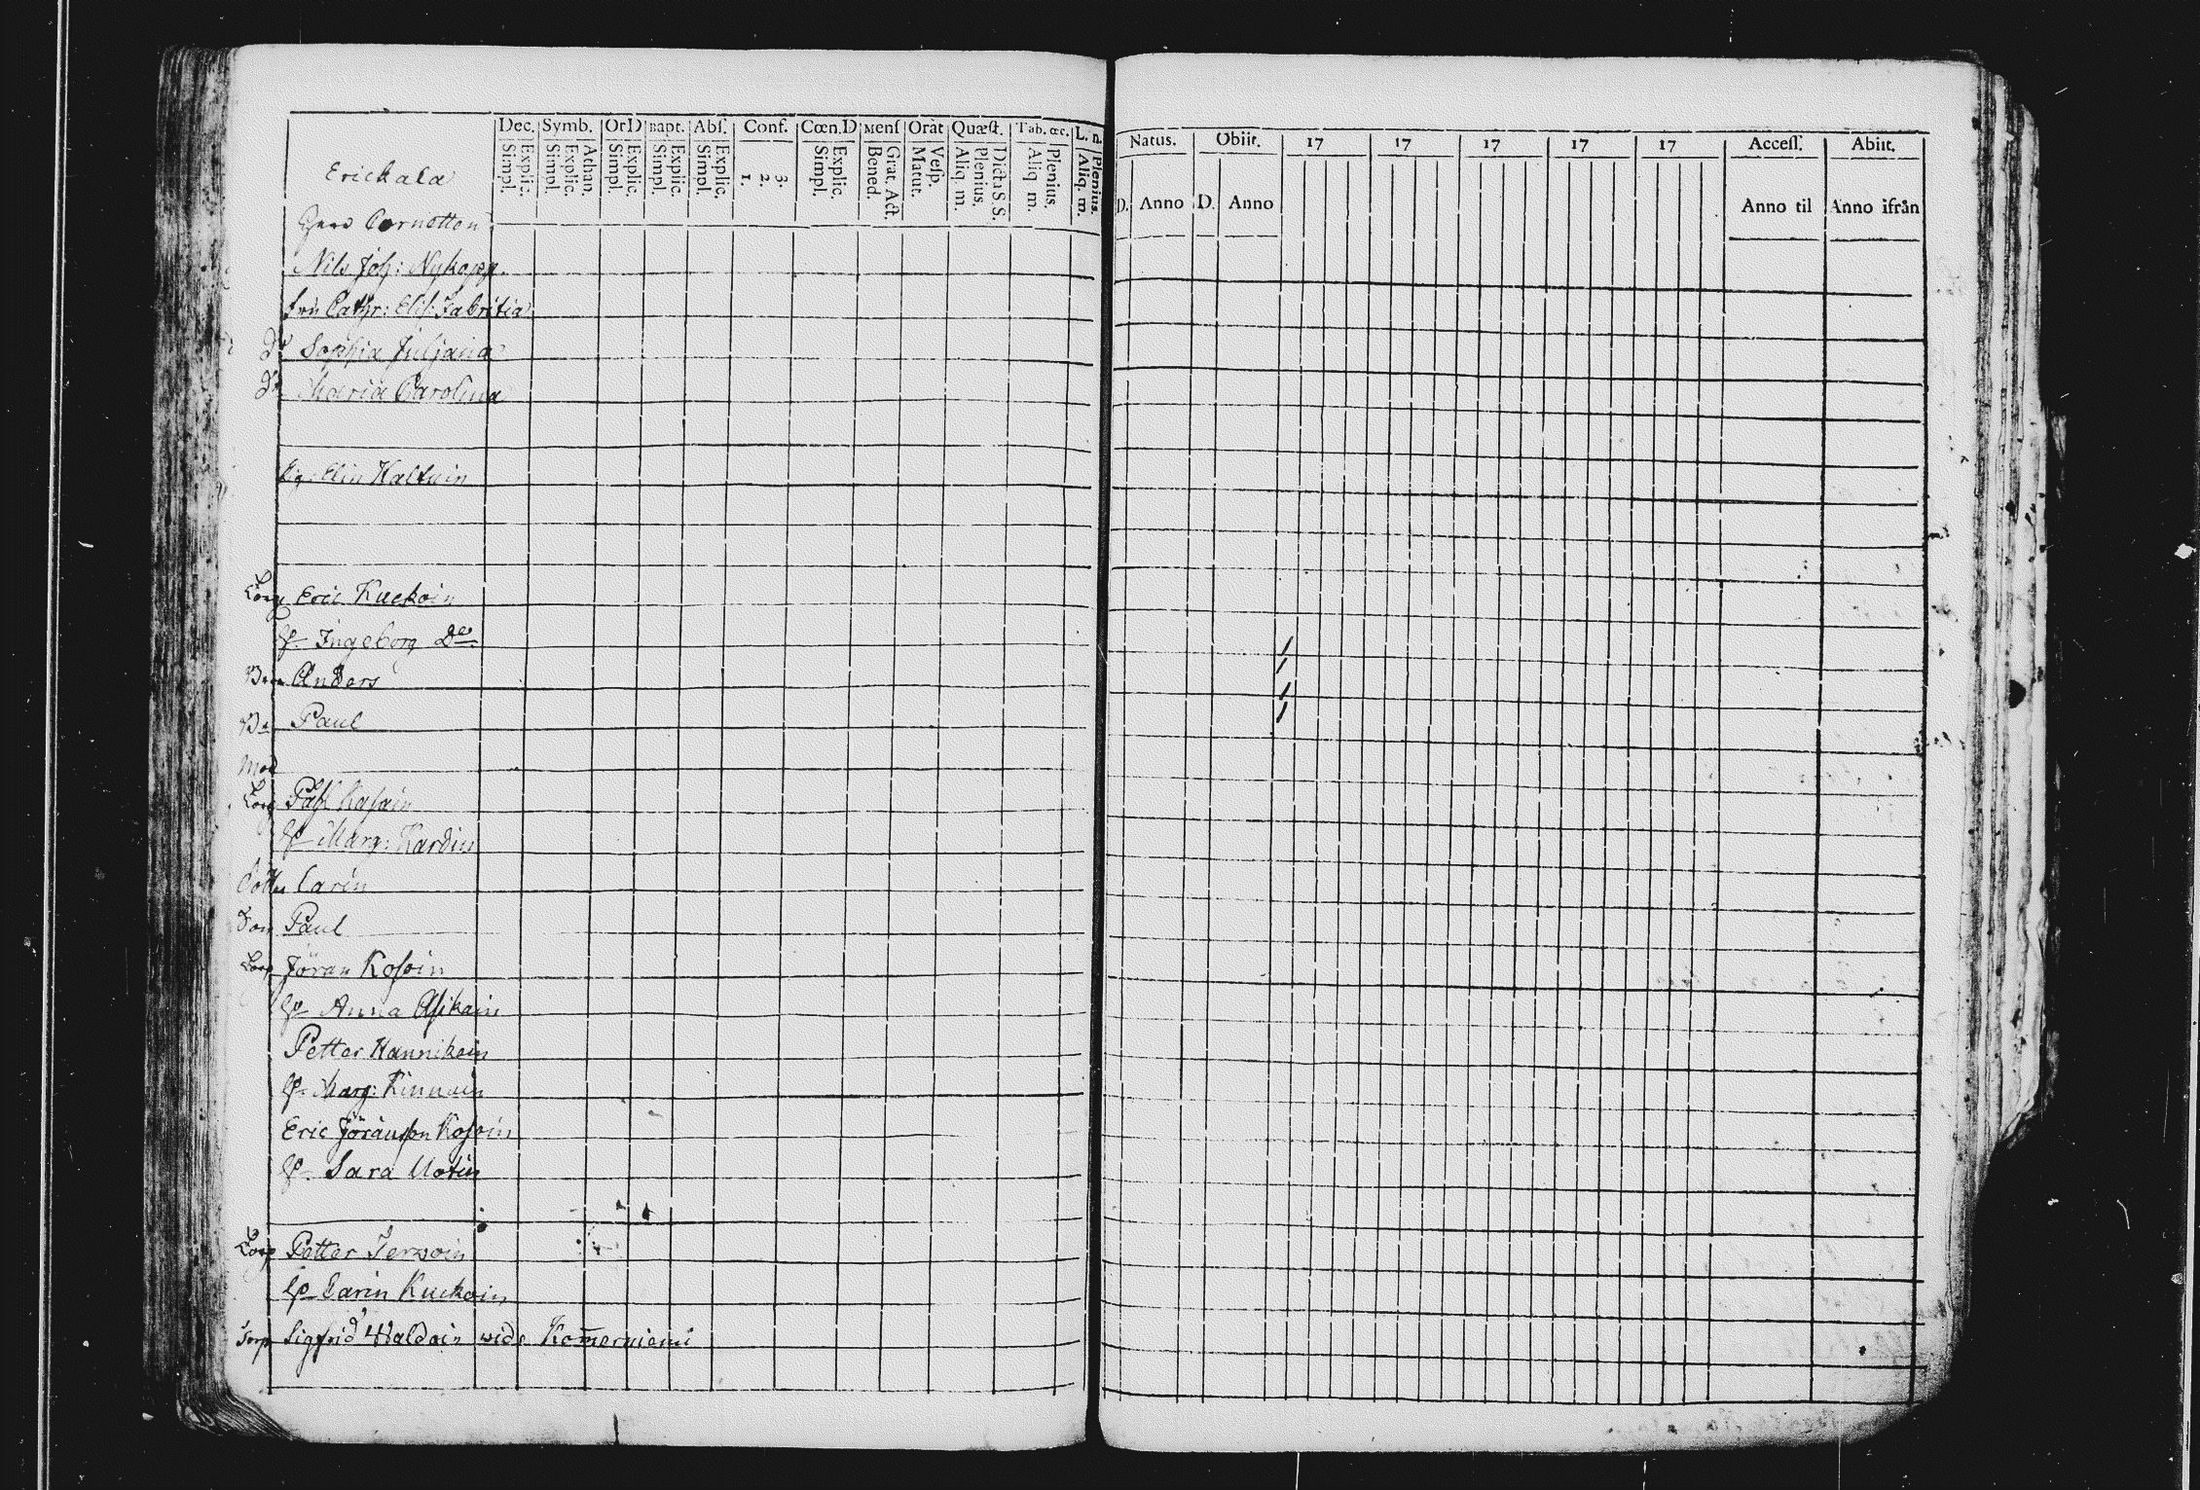 Dec. Symb. OrD Bapt. Abſ. Conf. Cœn.D Menſ Orat Quæſt. Tab. œc. L. n.
Simpl. Explic. Simpl. Explic. Athan. Simpl. Explic. Simpl Explic. Simpl Explic. 1. 2. 3. Simpl. Explic. Bened. Grat. Act. Matut. Veſp. Aliq. m. Plenius. Dicta S S. Aliq m. Plenius. Aliq. m. Plenius.
Natus. Obiit. 17 17 17 17 17 Acceſſ. Abiit.
D. Anno D. Anno Anno til Anno ifrån
Erickala
Nils Joh: Nykopp
fru Cathr: Elis: Fabritia
Sophia Juljana
Maria Carolina
Elin Haltuin
Torp Eric Kuckoin
H. Ingeborg De
Anders
Paul
Torp Påhl Kosoin
H Marg: Kardin
Carin
Son Paul
Torp Jöran Kosoin
H Anna Asikain
Petter Hannikain
H. Marg: Kinnain
Eric Jöransson Kosoin
H. Sara Uotin
Torp Petter Terwoin
H Carin Kuckoin
Torp Sigfrid Waldain wide Kom̄erniemi